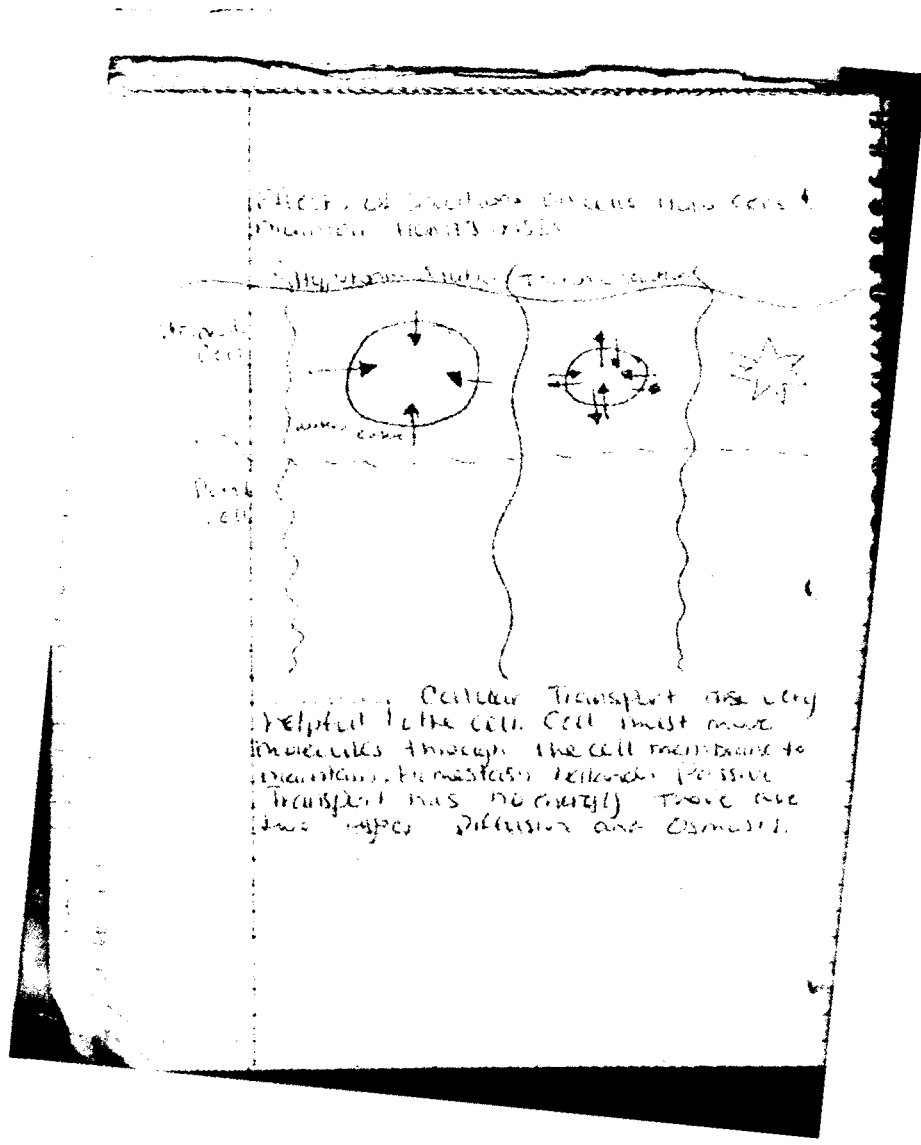 Effects of Solutions on cells How cells
Maintain
Hypotonic Solution Isotonic Solution
Animal
Cell
water enter
Plant
cell
Cellular Transport are very
helpful to the cell. Cell must move
molecules through the cell membrane to
maintain Passive
Transport has no energy There are
two types Diffusion and Osmosis.